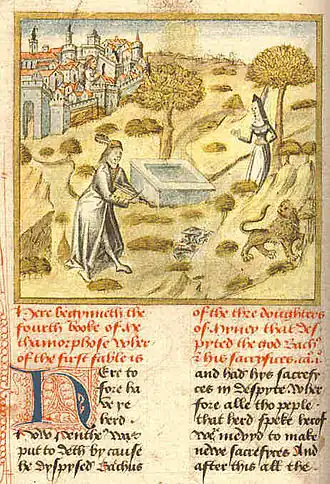 Here begynneth the
fourth booke of Me
thamorphose wher
of the first fable is
HEre to
fore ha
ve ye
herd
How Pentheꝰ was
put to deth by cause
he dyspysed Bachus
of the thre doughters
of Myney that des
pyted the god Bachꝰ
& his sacrifices
and hys sacrefy
ces in despyte Wher
fore alle tho peple
that herd speke herof
were meuyd to make
newe sacrefyces And
after this all the